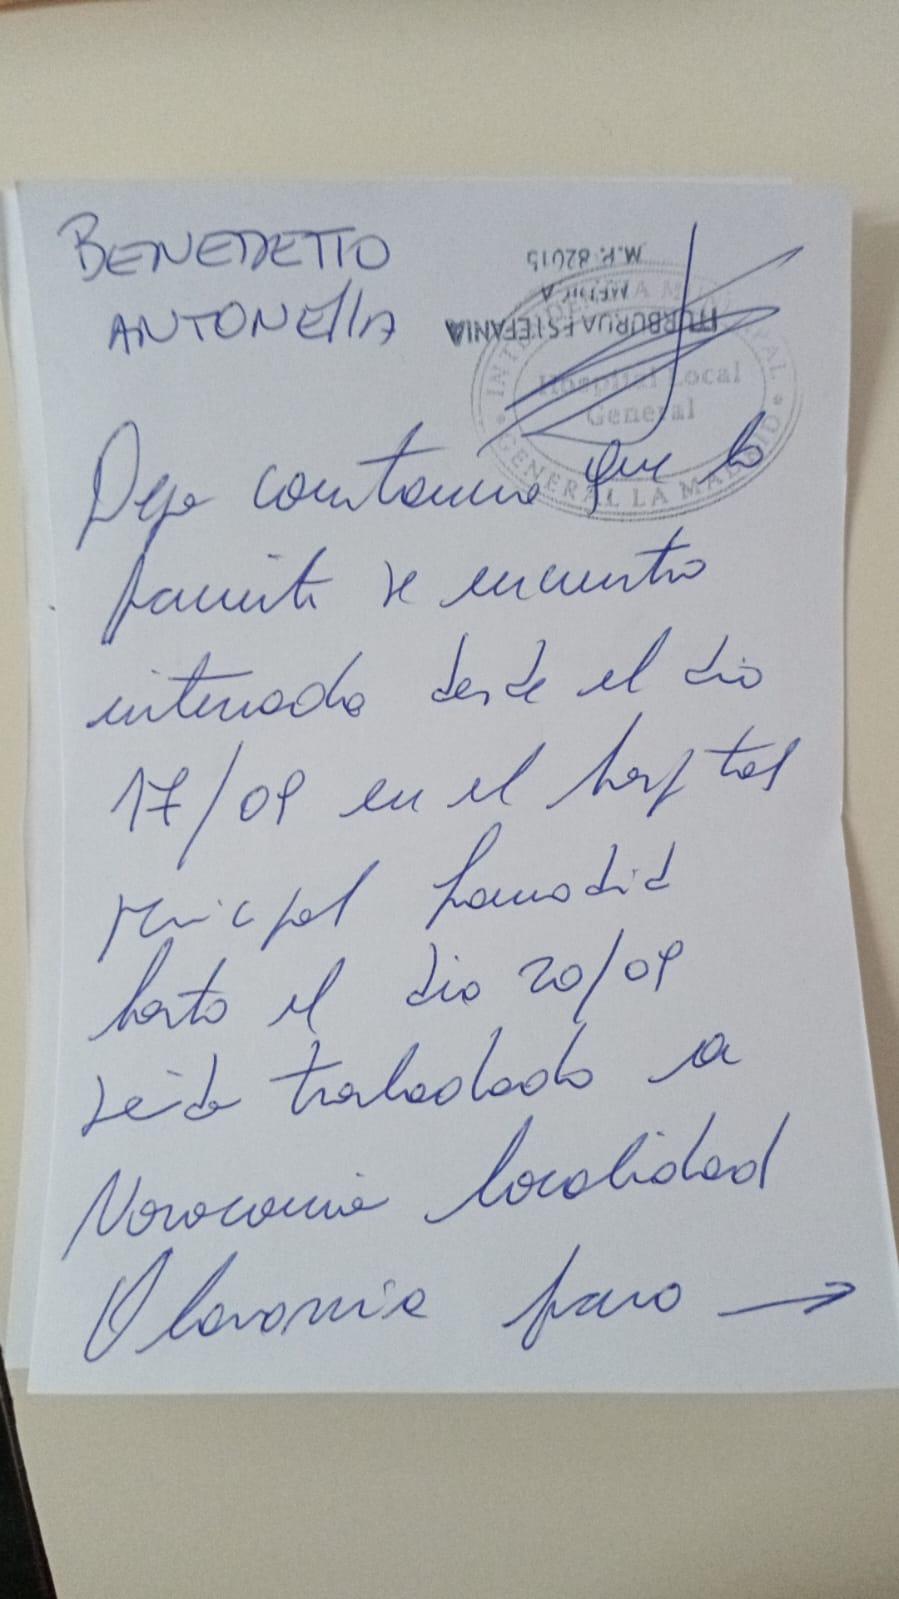 BENEDETTO
ANTONELLA
M.P. 82015
MEDICA
ITURBURUA ESTEFANIA
INTENDENCIA MUNICIPAL
Hospital Local
General
GENERAL LA MADRID
Dejo constancia que la
paciente se encuentra
internada desde el dia
17/09 en el hospital
Municipal Lamadrid
hasta el dia 20/09
siendo trasladada a
Novocomia localidad
Olavarria para →